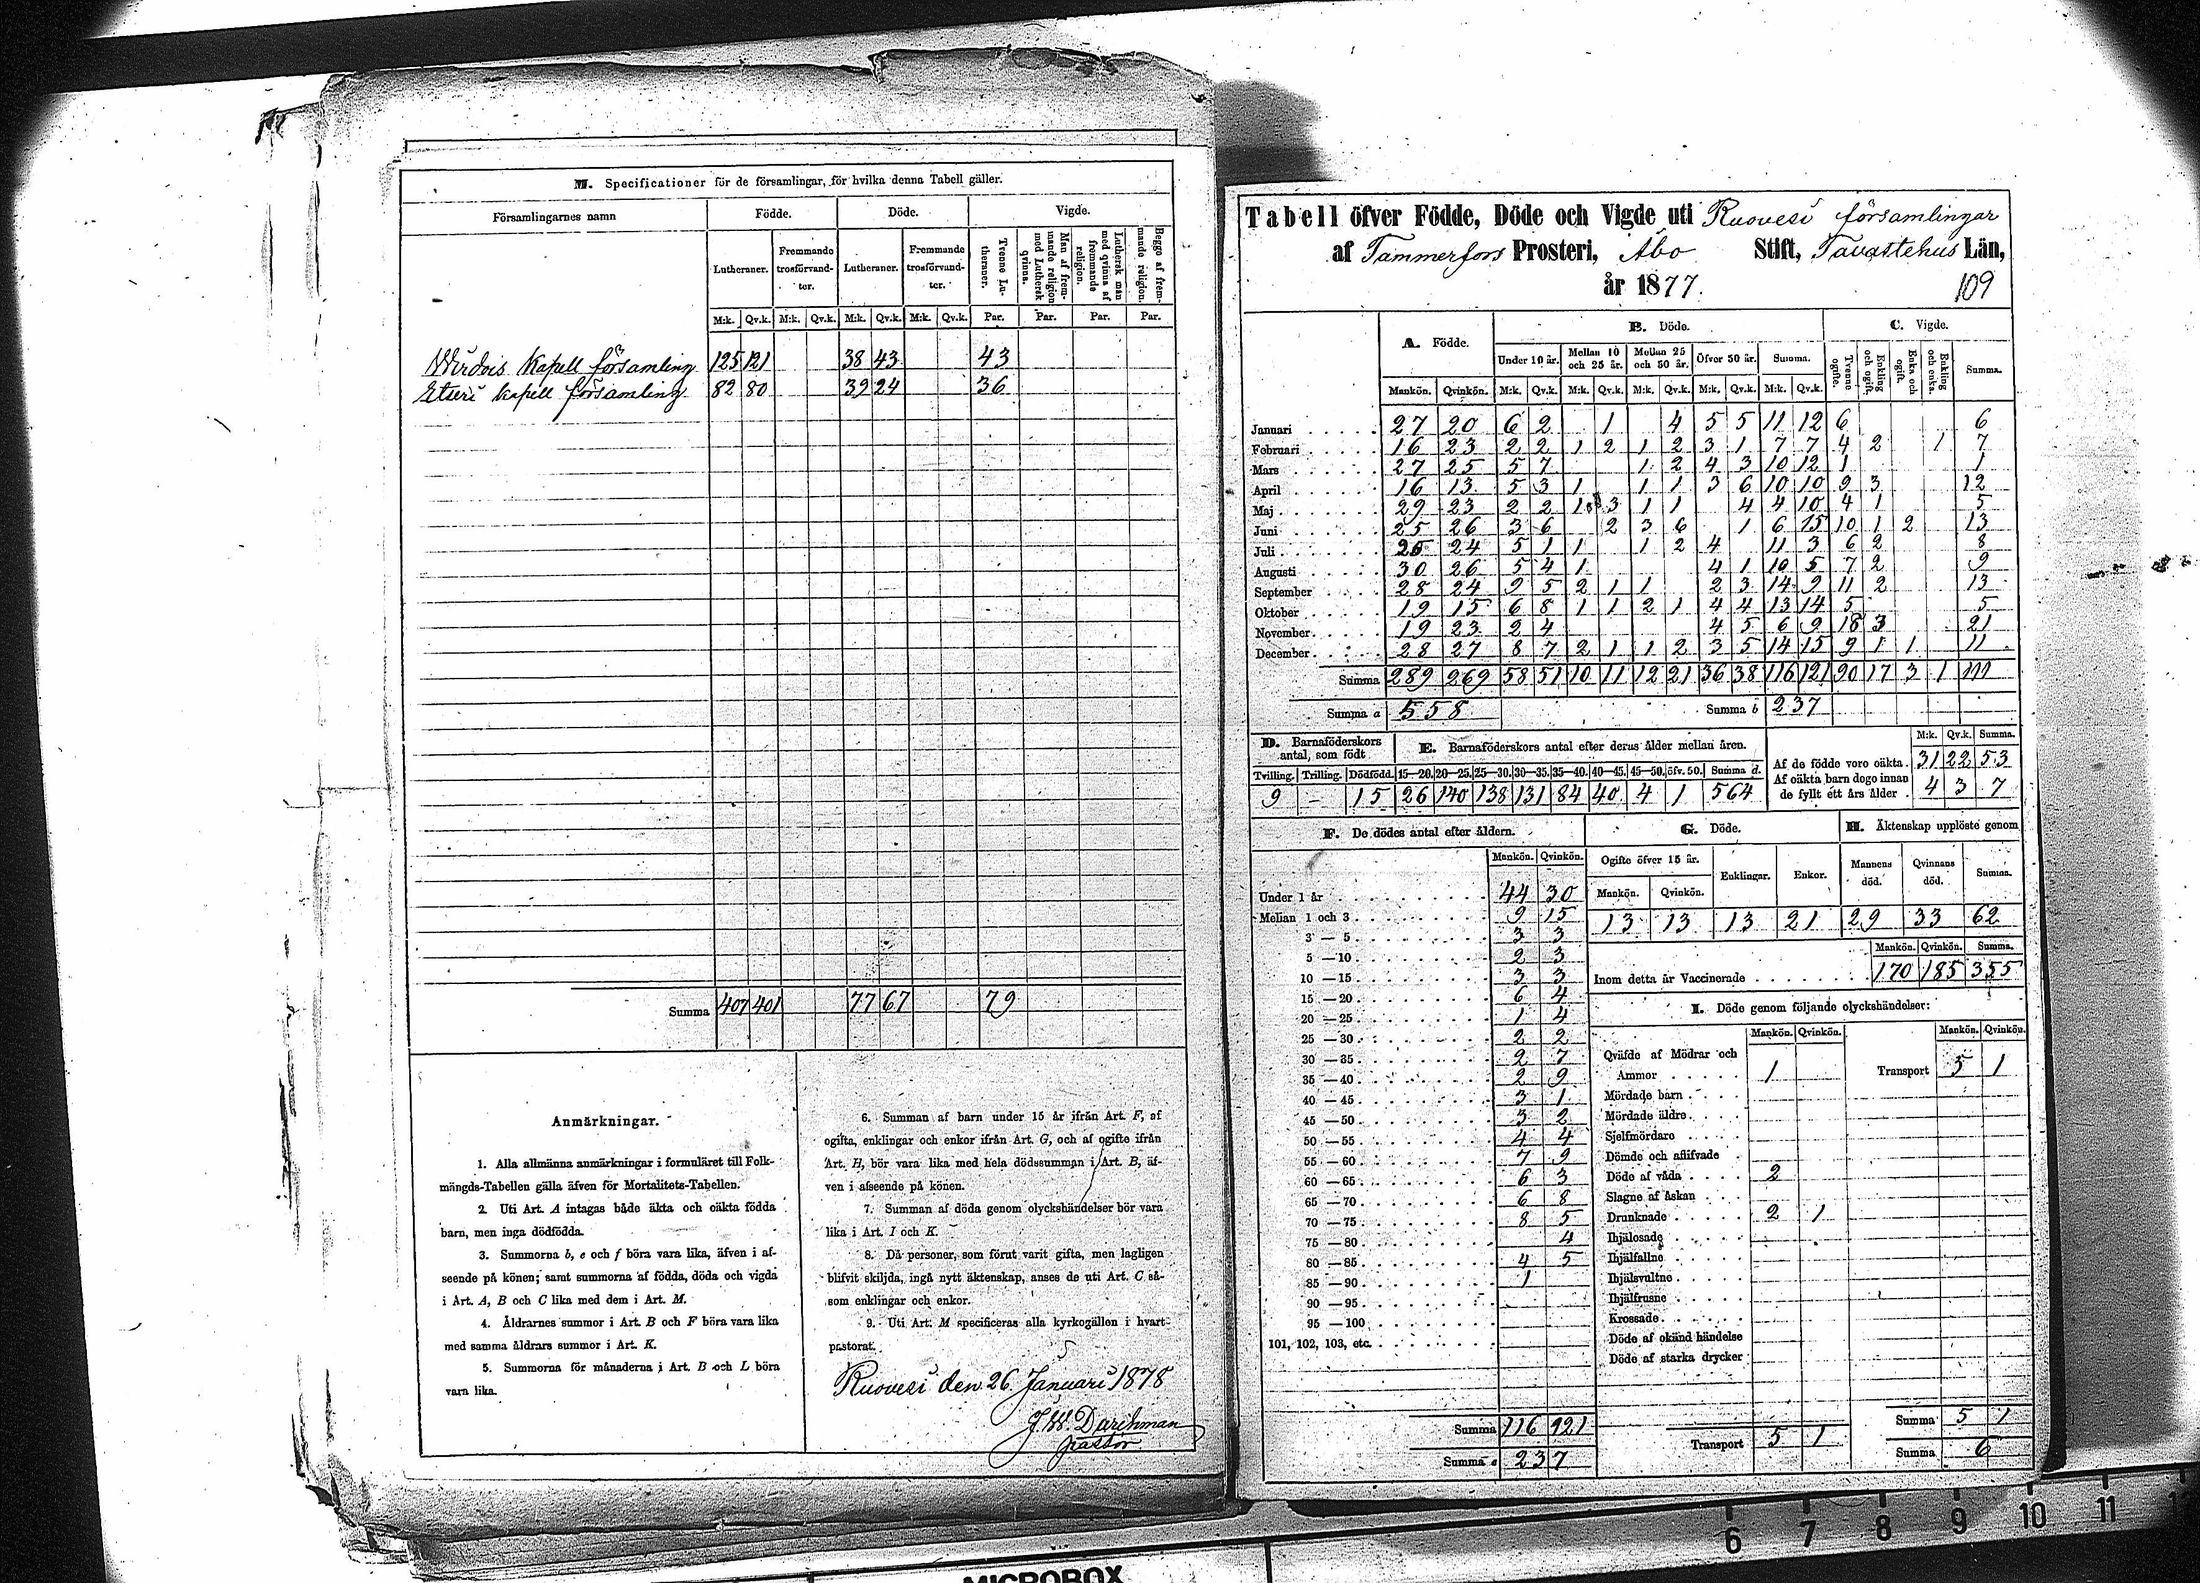 M. Specificationer för de församlingar, för hvilka denna Tabell gäller.
Församlingarnes namn | Födde. | Döde. | Vigde.
Lutheraner. | Fremmande trosförvandter. | Lutheraner. | Fremmande trosförvandter. | Tvenne Lutheraner. | Man af fremmande religion med Luthersk qvinna. | Luthersk man med qvinna af fremmande religion. | Begge af fremmande religion.
M:k. Qv.k. M:k. Qv.k. M:k. Qv.k. M:k. Qv.k. Par. Par. Par. Par.
Wirdois Kapell församling 125 121 38 43 43
Etseri kapell församling 82 80 39 24 36
Summa 407 401 77 67 79
Anmärkningar.
1. Alla allmänna anmärkningar i formuläret till Folk-
mängds-Tabellen gälla äfven för Mortalitets-Tabellen.
2. Uti Art. A intagas både äkta och oäkta födda
barn, men inga dödfödda.
3. Summorna b, e och f böra vara lika, äfven i af-
seende på könen; samt summorna af födda, döda och vigda
i Art. A, B och C lika med dem i Art. M.
4. Åldrarnes summor i Art. B och F böra vara lika
med samma åldrars summor i Art. K.
5. Summorna för månaderna i Art. B och L böra
vara lika.
6. Summan af barn under 15 år ifrån Art. F, af
ogifta, enklingar och enkor ifrån Art. G, och af ogifte ifrån
Art. H, bör vara lika med hela dödssumman i Art. B, äf-
ven i afseende på könen.
7. Summan af döda genom olyckshändelser bör vara
lika i Art. I och K.
8. Då personer, som förut varit gifta, men lagligen
blifvit skiljda, ingå nytt äktenskap, anses de uti Art. C så-
som enklingar och enkor.
9. Uti Art. M specificeras alla kyrkogällen i hvart
pastorat.
Ruovesi den 26 Januari 1878
J. W. Durchman
pastor
Tabell öfver Födde, Döde och Vigde uti Ruovesi församlingar
af Tammerfors Prosteri, Åbo Stift, Tavastehus Län,
år 1877.
109
A. Födde. | B. Döde. | C. Vigde.
Under 10 år. | Mellan 10 och 25 år. | Mellan 25 och 50 år. | Öfver 50 år. | Summa. | Tvenne ogifte. | Enkling och ogift. | Enka och ogift. | Enkling och enka. | Summa.
Mankön. Qvinkön. M:k. Qv.k. M:k. Qv.k. M:k. Qv.k. M:k. Qv.k. M:k. Qv.k.
Januari 27 20 6 2 1 4 5 5 11 12 6 6
Februari 16 23 2 2 1 2 1 2 3 1 7 7 4 2 1 7
Mars 27 25 5 7 1 2 4 3 10 12 1 1
April 16 13 5 3 1 1 1 3 6 10 10 9 3 12
Maj 29 23 2 2 1 3 1 1 4 4 10 4 1 5
Juni 25 26 3 6 2 3 6 1 6 15 10 1 2 13
Juli 25 24 5 1 1 1 2 4 11 3 6 2 8
Augusti 30 26 5 4 1 4 1 10 5 7 2 9
September 28 24 9 5 2 1 1 2 3 14 9 11 2 13
Oktober 19 15 6 8 1 1 2 1 4 4 13 14 5 5
November 19 23 2 4 4 5 6 9 18 3 21
December 28 27 8 7 2 1 1 2 3 5 14 15 9 1 1 11
Summa 289 269 58 51 10 11 12 21 36 38 116 121 90 17 3 1 111
Summa a 558 Summa b 237
D. Barnaföderskors antal, som födt | E. Barnaföderskors antal efter deras ålder mellan åren. | M:k. Qv.k. Summa.
Tvilling. Trilling. Dödfödd. 15—20. 20—25. 25—30. 30—35. 35—40. 40—45. 45—50. öfv. 50. Summa d.
9 - 15 26 140 138 131 84 40 4 1 564
Af de födde voro oäkta 31 22 53
Af oäkta barn dogo innan de fyllt ett års ålder 4 3 7
F. De dödes antal efter åldern.
Mankön. Qvinkön.
Under 1 år 44 30
Mellan 1 och 3 9 15
3 — 5 3 3
5 — 10 2 3
10 — 15 3 3
15 — 20 6 4
20 — 25 1 4
25 — 30 2 2
30 — 35 2 7
35 — 40 2 9
40 — 45 3 1
45 — 50 3 2
50 — 55 4 4
55 — 60 7 9
60 — 65 6 3
65 — 70 6 8
70 — 75 8 5
75 — 80 4
80 — 85 4 5
85 — 90 1
90 — 95
95 — 100
101, 102, 103, etc.
Summa 116 121
Summa e 237
G. Döde. | H. Äktenskap upplöste genom
Ogifte öfver 15 år. | Enklingar. | Enkor. | Mannens död. | Qvinnans död. | Summa.
Mankön. Qvinkön.
13 13 13 21 29 33 62
Mankön. Qvinkön. Summa.
Inom detta år Vaccinerade 170 185 355
I. Döde genom följande olyckshändelser:
Mankön. Qvinkön. Mankön. Qvinkön.
Qväfde af Mödrar och
Ammor 1 Transport 5 1
Mördade barn
Mördade äldre
Sjelfmördare
Dömde och aflifvade
Döde af våda 2
Slagne af åskan
Drunknade 2 1
Ihjälosade
Ihjälfallne
Ihjälsvultne
Ihjälfrusne
Krossade
Döde af okänd händelse
Döde af starka drycker
Transport 5 1
Summa 5 1
Summa 6
6 7 8 9 10 11
MICROBOX